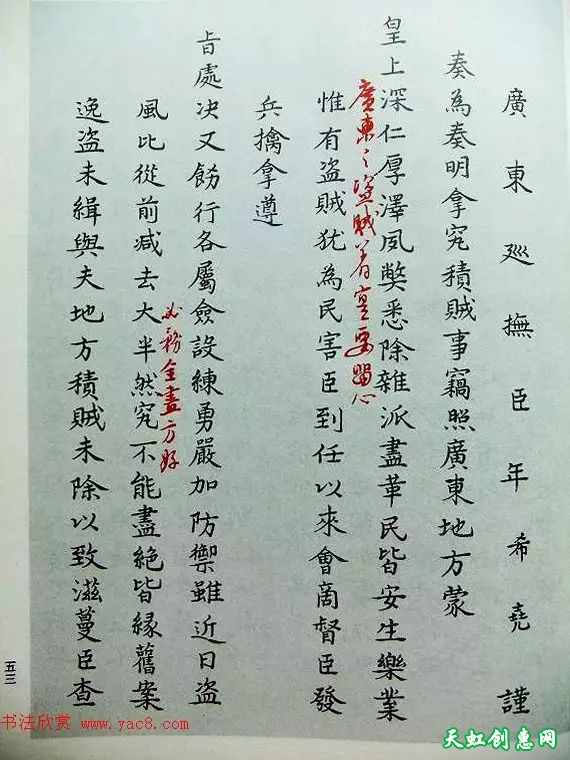 廣東廵撫臣年希堯謹
奏為奏明拿究積賊事竊照廣東地方蒙
皇上深仁厚澤夙弊悉除雜派盡革民皆安生樂業
廣東之盜賊着實要留心
惟有盗賊犹為民害臣到任以來會商督臣發
兵擒拿遵
旨處决又飭行各屬僉設練勇嚴加防禦雖近日盗
必務全盡方好
風比從前减去大半然究不能盡絕皆緣舊案
逸盗未緝與夫地方積賊未除以致滋蔓臣查
五三
书法欣赏 www.yac8.com
天虹创惠网